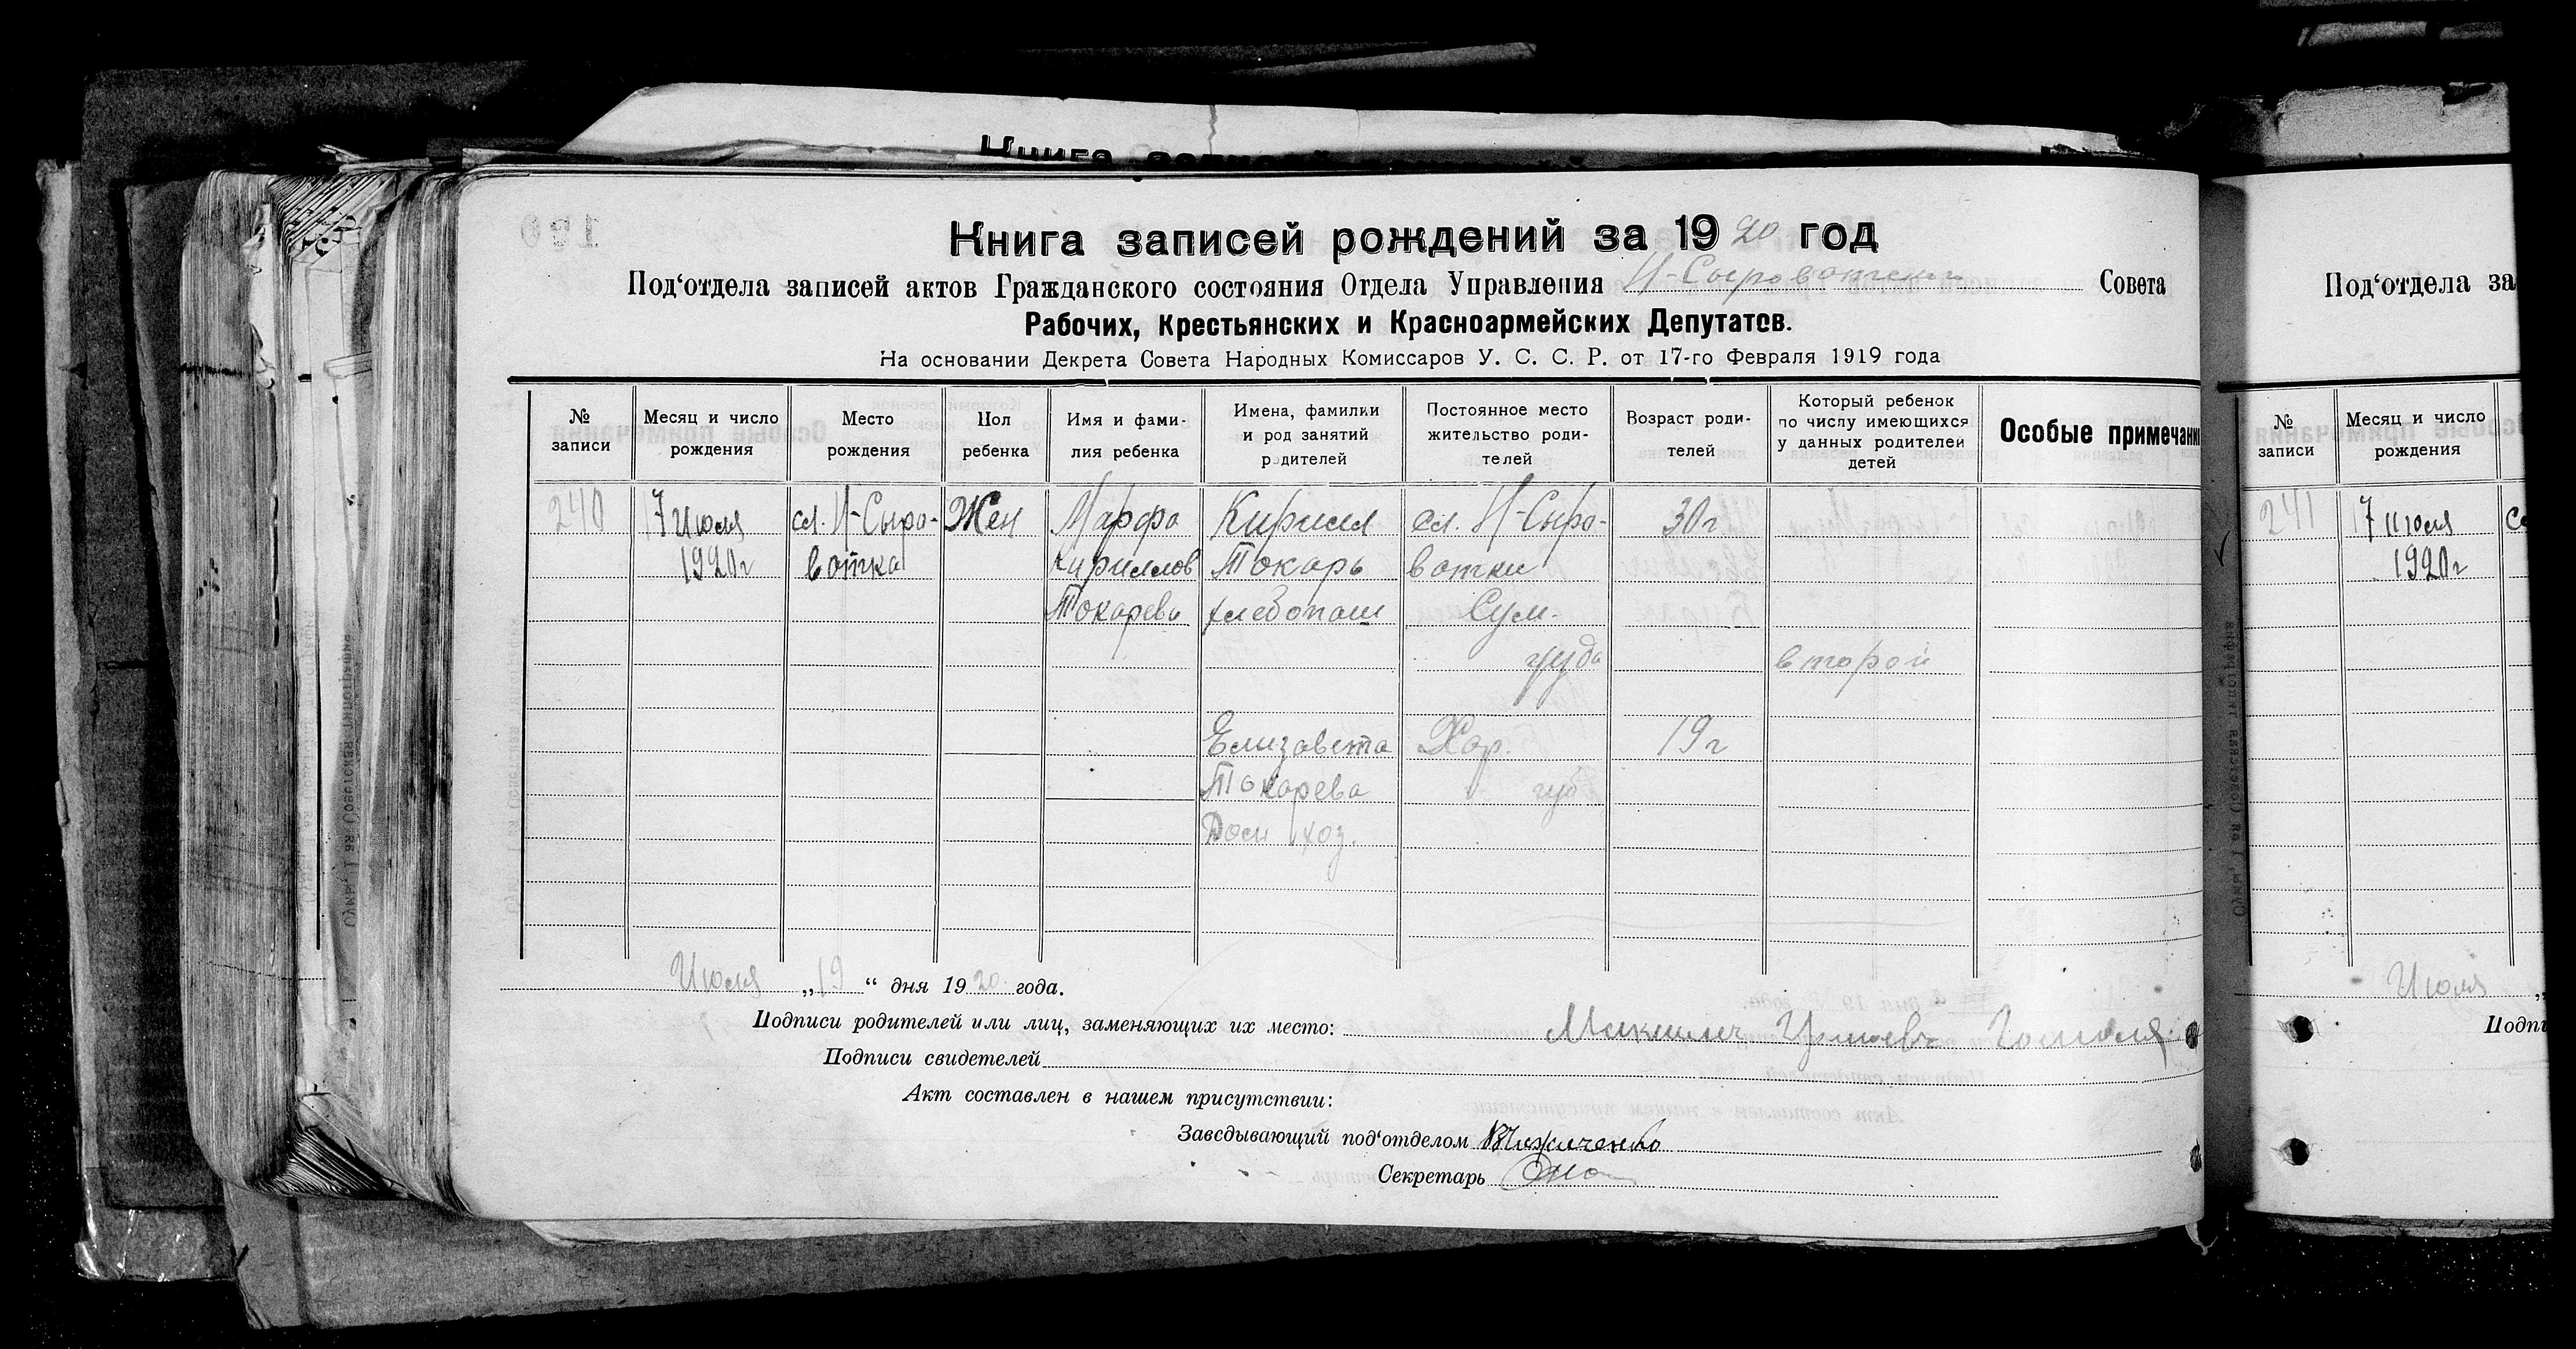 Книга записей рождений за 1920 год
Под‘отдела записей актов Гражданского состояния Отдела Управления Н-Сыроватский Совета
Рабочих, Крестьянских и Красноармейских Депутатов.
На основании Декрета Совета Народных Комиссаров У. С. С. Р. от 17-го Февраля 1919 года
№ записи
Месяц и число рождения
Место рождения
Пол ребенка
Имя и фами-
лия ребенка
Имена, фамилии
и род занятий
родителей
Постоянное место
жительство роди-
телей
Возраст роди-
телей
Который ребенок
по числу имеющихся
у данных родителей
детей
Особые примечани
240
7 Июля
1920 г
сл. Н-Сыро-
ватка
Жен
Марфа
Кириллов
Токарева
Кирилл
Токарь
хлебопаш
Елизавета
Токарева
Дом хоз.
сл. Н-Сыро-
ватки
Сум-
уезда
Хар.
губ
30 г
19 г
второй
Июля „19“ дня 1920 года.
Подписи родителей или лиц, заменяющих их место:
Подписи свидетелей
Акт составлен в нашем присутствии:
Заведывающий под‘отделом
Секретарь
Под‘отдела за
№ записи
Месяц и число рождения
241
7 Июля
1920 г
Июля
Подпи